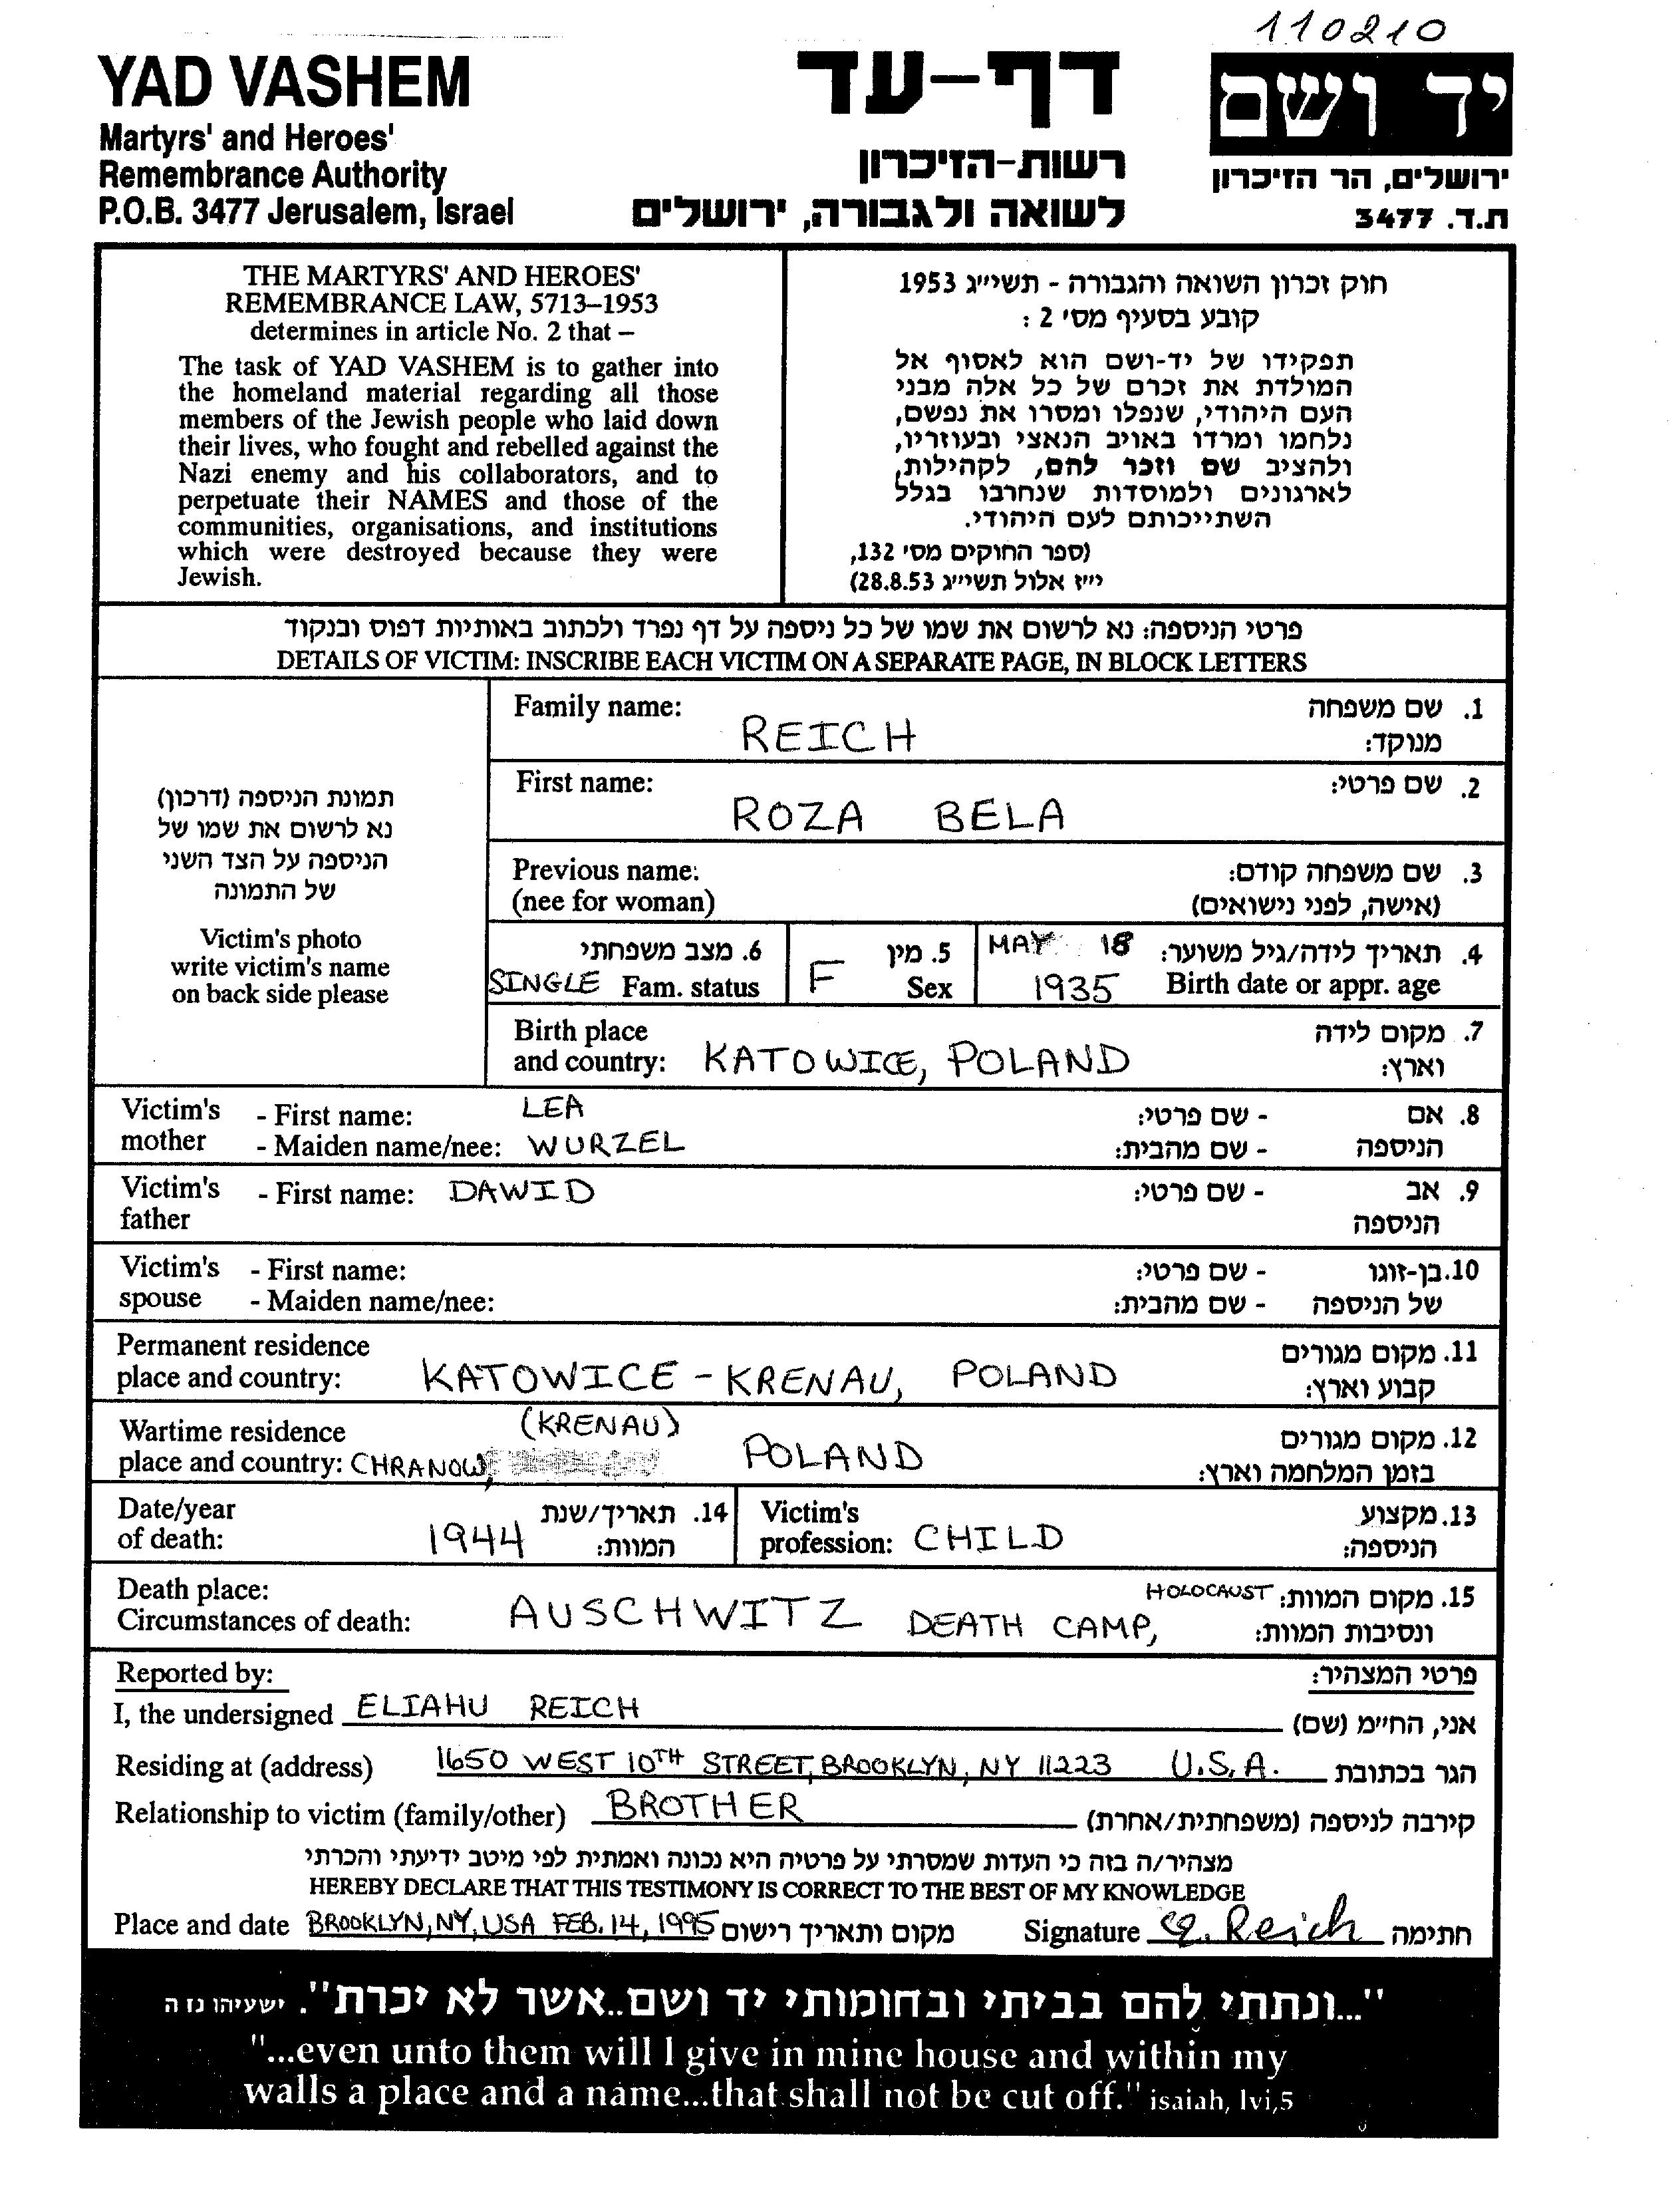 110210
YAD VASHEM
Martyrs' and Heroes'
Remembrance Authority
P.O.B. 3477 Jerusalem, Israel
דף-עד
רשות-הזיכרון
לשואה ולגבורה, ירושלים
יד ושם
ירושלים, הר הזיכרון
ת.ד. 3477
THE MARTYRS' AND HEROES'
REMEMBRANCE LAW, 5713–1953
determines in article No. 2 that –
The task of YAD VASHEM is to gather into
the homeland material regarding all those
members of the Jewish people who laid down
their lives, who fought and rebelled against the
Nazi enemy and his collaborators, and to
perpetuate their NAMES and those of the
communities, organisations, and institutions
which were destroyed because they were
Jewish.
חוק זכרון השואה והגבורה - תשי״ג 1953
קובע בסעיף מס׳ 2 :
תפקידו של יד-ושם הוא לאסוף אל
המולדת את זכרם של כל אלה מבני
העם היהודי, שנפלו ומסרו את נפשם,
נלחמו ומרדו באויב הנאצי ובעוזריו,
ולהציב שם וזכר להם, לקהילות,
לארגונים ולמוסדות שנחרבו בגלל
השתייכותם לעם היהודי.
(ספר החוקים מס׳ 132,
י״ז אלול תשי״ג 28.8.53)
פרטי הניספה: נא לרשום את שמו של כל ניספה על דף נפרד ולכתוב באותיות דפוס ובנקוד
DETAILS OF VICTIM: INSCRIBE EACH VICTIM ON A SEPARATE PAGE, IN BLOCK LETTERS
תמונת הניספה (דרכון)
נא לרשום את שמו של
הניספה על הצד השני
של התמונה
Victim's photo
write victim's name
on back side please
Family name: REICH 1. שם משפחה
מנוקד:
First name: ROZA BELA 2. שם פרטי:
Previous name: 3. שם משפחה קודם:
(nee for woman) (אישה, לפני נישואים)
6. מצב משפחתי 5. מין MAY 18 4. תאריך לידה/גיל משוער:
SINGLE Fam. status F Sex 1935 Birth date or appr. age
Birth place 7. מקום לידה
and country: KATOWICE, POLAND וארץ:
Victim's - First name: LEA - שם פרטי: 8. אם
mother - Maiden name/nee: WURZEL - שם מהבית: הניספה
Victim's - First name: DAWID - שם פרטי: 9. אב
father הניספה
Victim's - First name: - שם פרטי: 10. בן-זוגו
spouse - Maiden name/nee: - שם מהבית: של הניספה
Permanent residence 11. מקום מגורים
place and country: KATOWICE - KRENAU, POLAND קבוע וארץ:
Wartime residence (KRENAU) 12. מקום מגורים
place and country: CHRANOW, POLAND בזמן המלחמה וארץ:
Date/year 14. תאריך/שנת Victim's 13. מקצוע
of death: 1944 המוות: profession: CHILD הניספה:
Death place: HOLOCAUST 15. מקום המוות:
Circumstances of death: AUSCHWITZ DEATH CAMP, ונסיבות המוות:
Reported by: פרטי המצהיר:
I, the undersigned ELIAHU REICH אני, החי״מ (שם)
Residing at (address) 1650 WEST 10TH STREET, BROOKLYN, NY 11223 U.S.A. הגר בכתובת
Relationship to victim (family/other) BROTHER קירבה לניספה (משפחתית/אחרת)
מצהיר/ה בזה כי העדות שמסרתי על פרטיה היא נכונה ואמתית לפי מיטב ידיעתי והכרתי
HEREBY DECLARE THAT THIS TESTIMONY IS CORRECT TO THE BEST OF MY KNOWLEDGE
Place and date BROOKLYN, NY, USA FEB. 14, 1995 מקום ותאריך רישום Signature E. Reich חתימה
"...ונתתי להם בביתי ובחומותי יד ושם..אשר לא יכרת". ישעיהו נז ה
"...even unto them will I give in mine house and within my
walls a place and a name...that shall not be cut off." isaiah, lvi,5